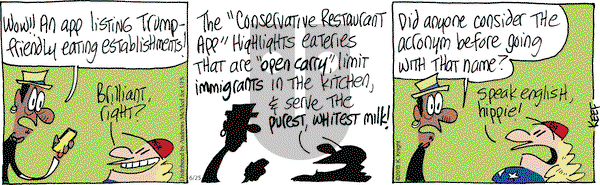 Wow!! An app listing Trump-
friendly eating establishments!
Brilliant,
right?
The "Conservative Restaurant
App" highlights eateries
that are "open carry," limit
immigrants in the kitchen,
& serve the
purest, whitest milk!
6/25
Did anyone consider the
acronym before going
with that name?
Speak english,
hippie!
KEEF